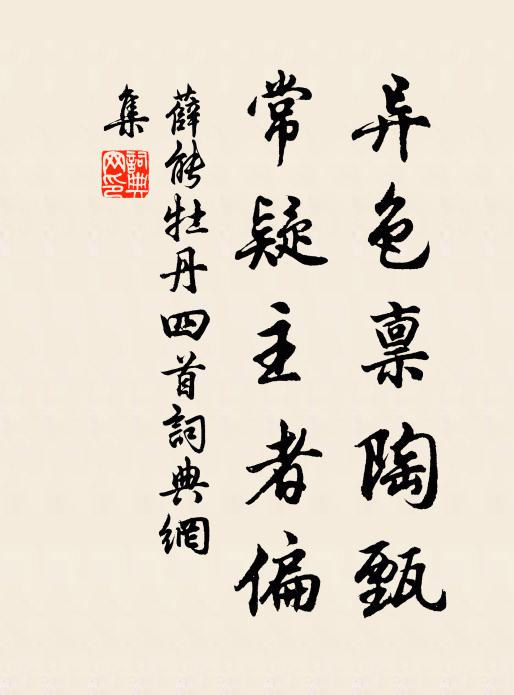 异色禀陶甄
常疑主者偏
薛能牡丹四首詞典網
集
詞典
网印